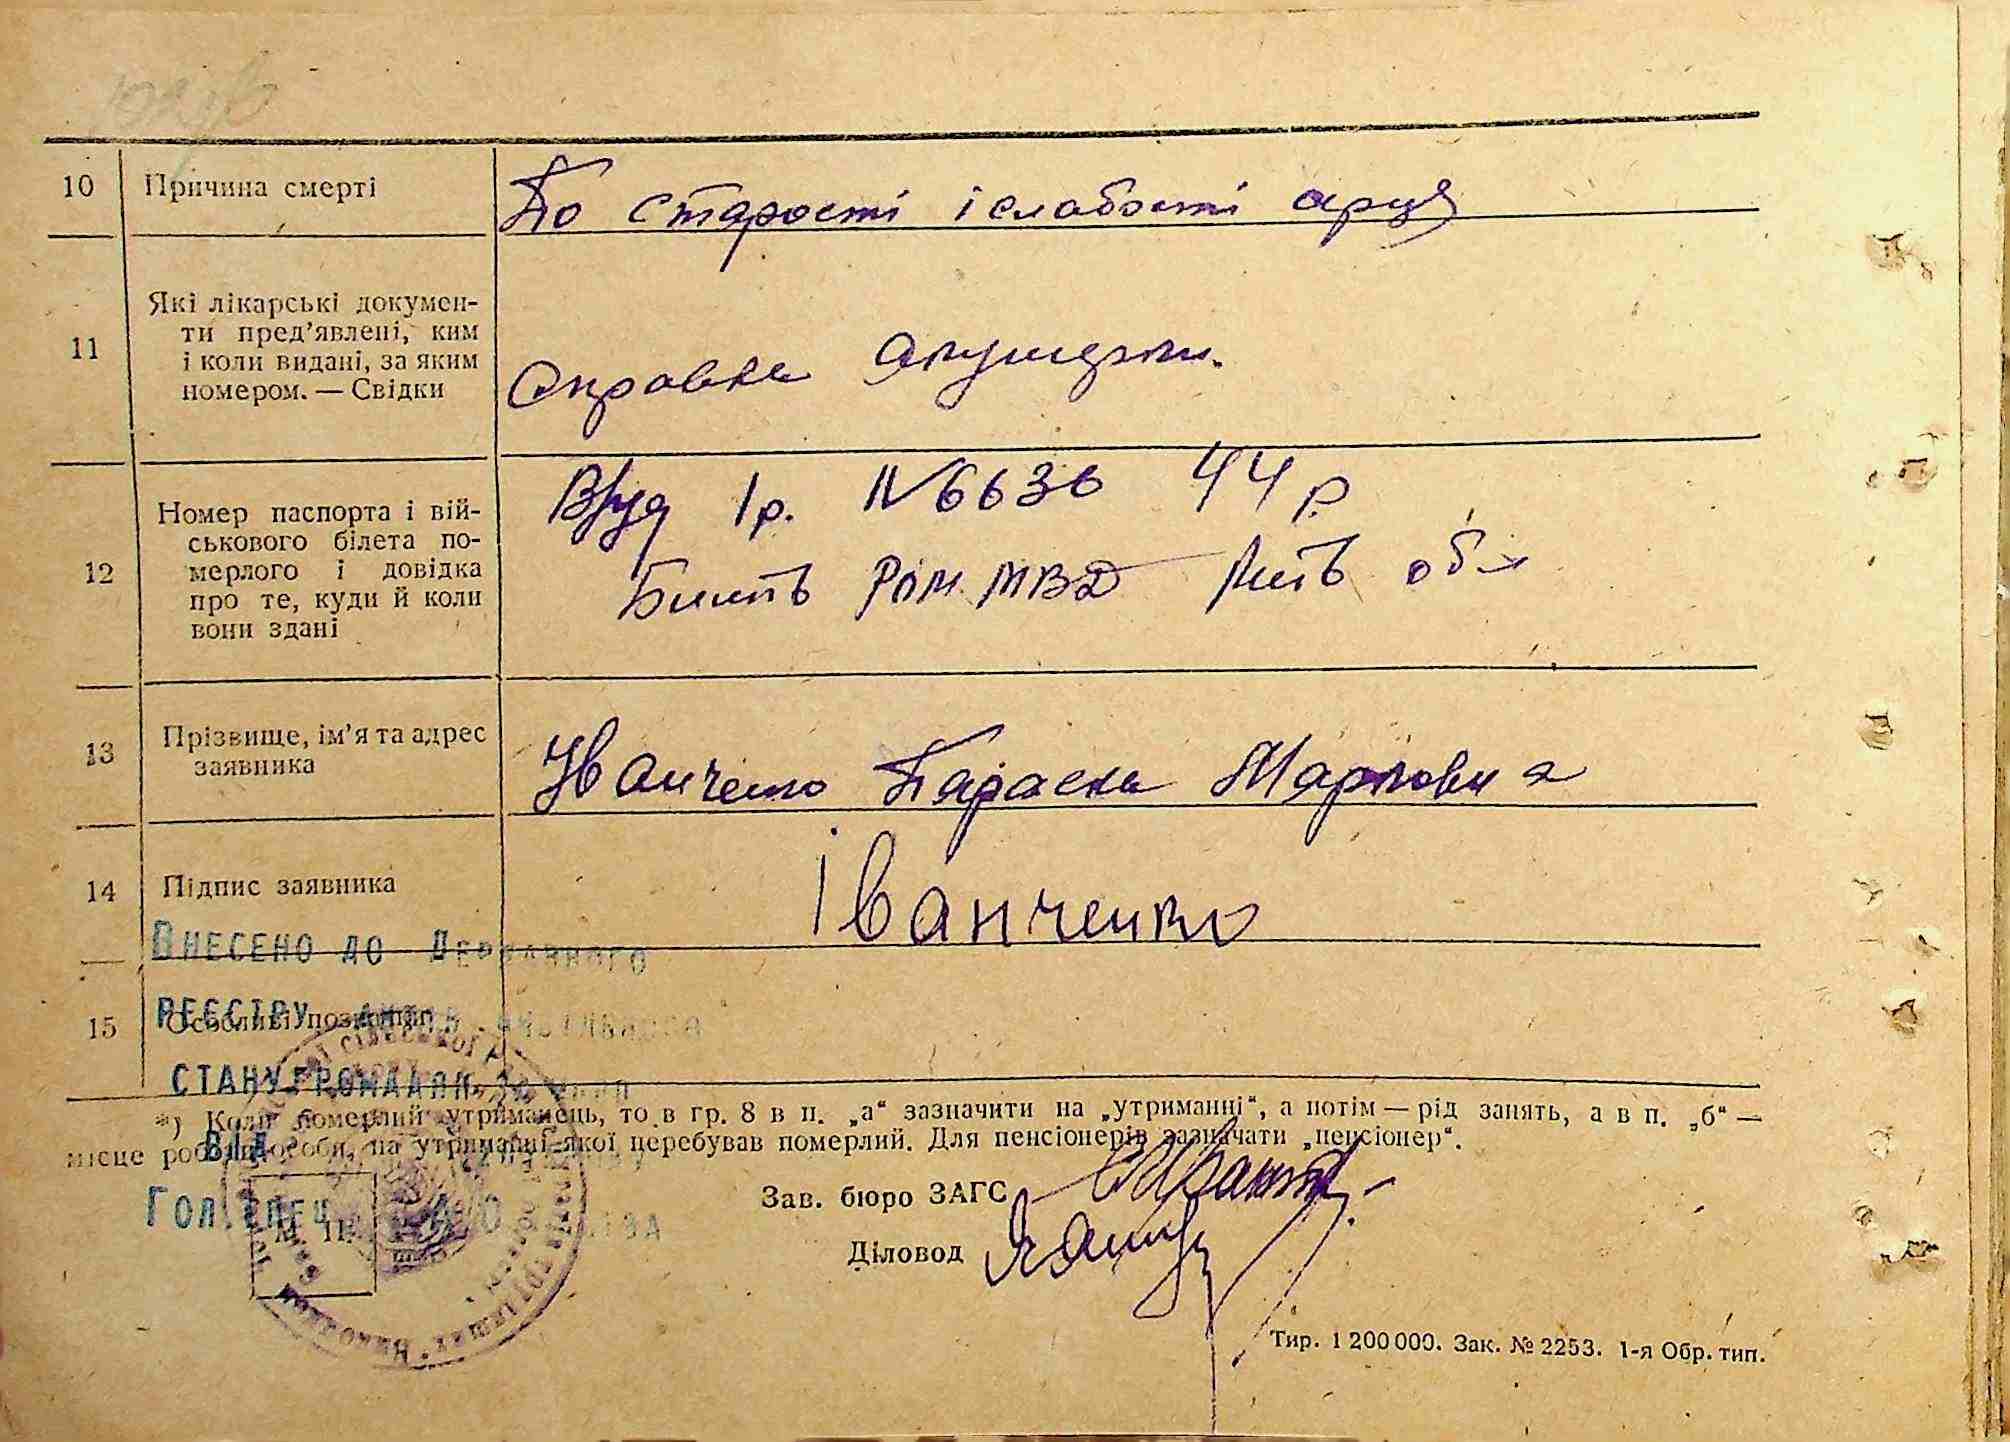 10 Причина смерті По старості і слабості серця
11 Які лікарські докумен-
ти пред'явлені, ким
і коли видані, за яким
номером. — Свідки
Справка Акушерки.
12 Номер паспорта і вій-
ськового білета по-
мерлого і довідка
про те, куди й коли
вони здані
1р. № 6636 44 р.
РОМ МВД обл
13 Прізвище, ім'я та адрес
заявника
Іванченко Параска Марковна
14 Підпис заявника Іванченко
Внесено до Державного
15 Особливі позначки
реєстру актів цивільного
стану громадян за №
*) Коли померлий утриманець, то в гр. 8 в п. „а“ зазначити на „утриманні“, а потім — рід занять, а в п. „б“ —
місце роботи особи, на утриманні якої перебував померлий. Для пенсіонерів зазначати „пенсіонер“.
від
Зав. бюро ЗАГС
Гол. спец.
М. П.
Діловод
Тир. 1 200 000. Зак. № 2253. 1-я Обр. тип.